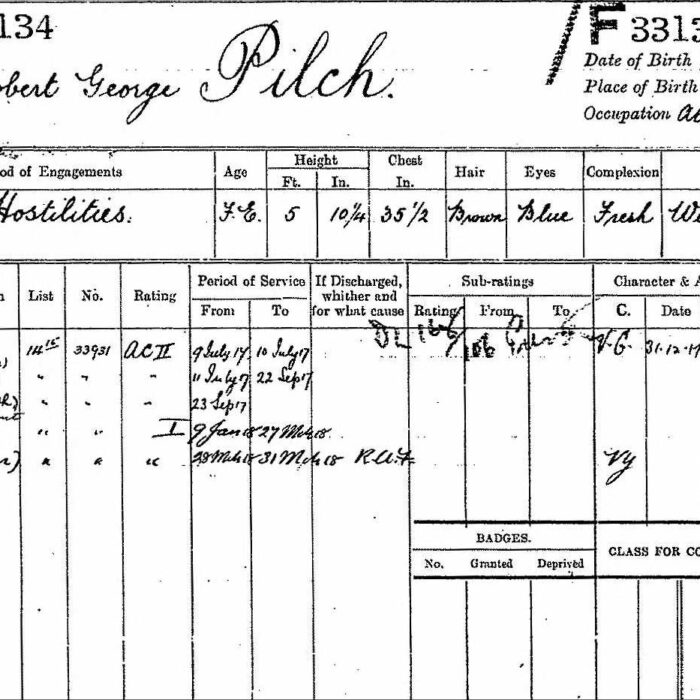 134
F 3313
obert George Pilch.
Date of Birth
Place of Birth
Occupation
od of Engagements Age Height Chest Hair Eyes Complexion
Ft. In. In.
Hostilities. F.E. 5 10¼ 35½ Brown Blue Fresh
List No. Rating Period of Service If Discharged, whither and for what cause Sub-ratings Character & A
From To Rating From To C. Date
14 15 33931 AC II 9 July 17 10 July 17 V.G. 31.12.17
" " " 11 July 17 22 Sep 17
" " " 23 Sep 17
" " I 9 Jan 18 27 Mch 18
" " " 28 Mch 18 31 Mch 18 R.A.F. VG
BADGES.
No. Granted Deprived
CLASS FOR CO